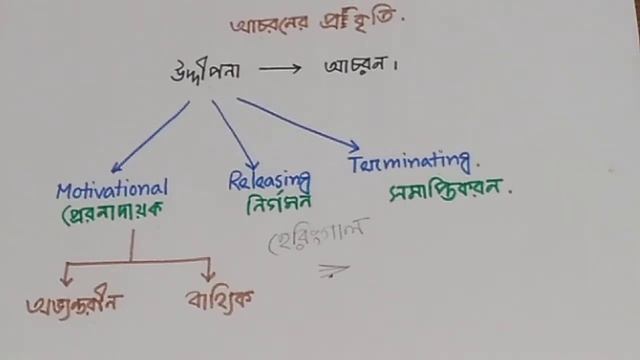 আচরনের প্রকৃতি.
উদ্দীপনা → আচরন।
Motivational
প্রেরনাদায়ক
Releasing
নির্গমন
Terminating.
সমাপ্তিকরন.
হেরিংগাল
অভ্যন্তরীন
বাহ্যিক